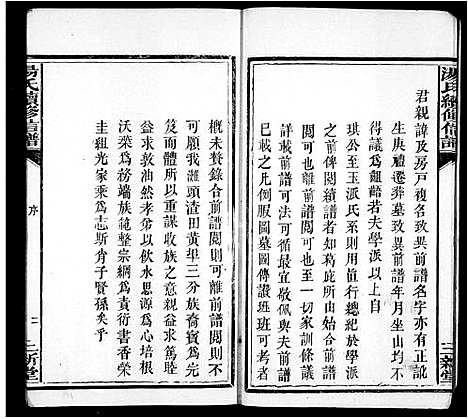 湯氏續修信譜
君親諱及房戶名致異前譜名字亦有正訛
生庚禮葬墓致異前譜年月坐山均不
得議為齟齬若夫學派以上自
琪公至玉派氏系則用值行總紀於學派
之前俾閱續譜者如葛庞所由始合前譜
閱可也離前譜閱亦可也至一切家訓條議
詳載前譜可法可循所最宜敬佩與夫前譜
載之凡例服圖墓圖傳讚班班可考者
三新堂
概未贅錄合前譜閱則可離前譜閱則不
可願我灘頭渣田黃畢三分族裔寶為元
笈而體所以重謀收族之意親益求篤睦
益求敦油然孝弟以飲水思源為心培根
沃葉為務端族範整宗綱為責衍書香榮
圭組光家乘為志斯肖子賢孫矣乎
湯氏續修信譜
序
二
三新堂